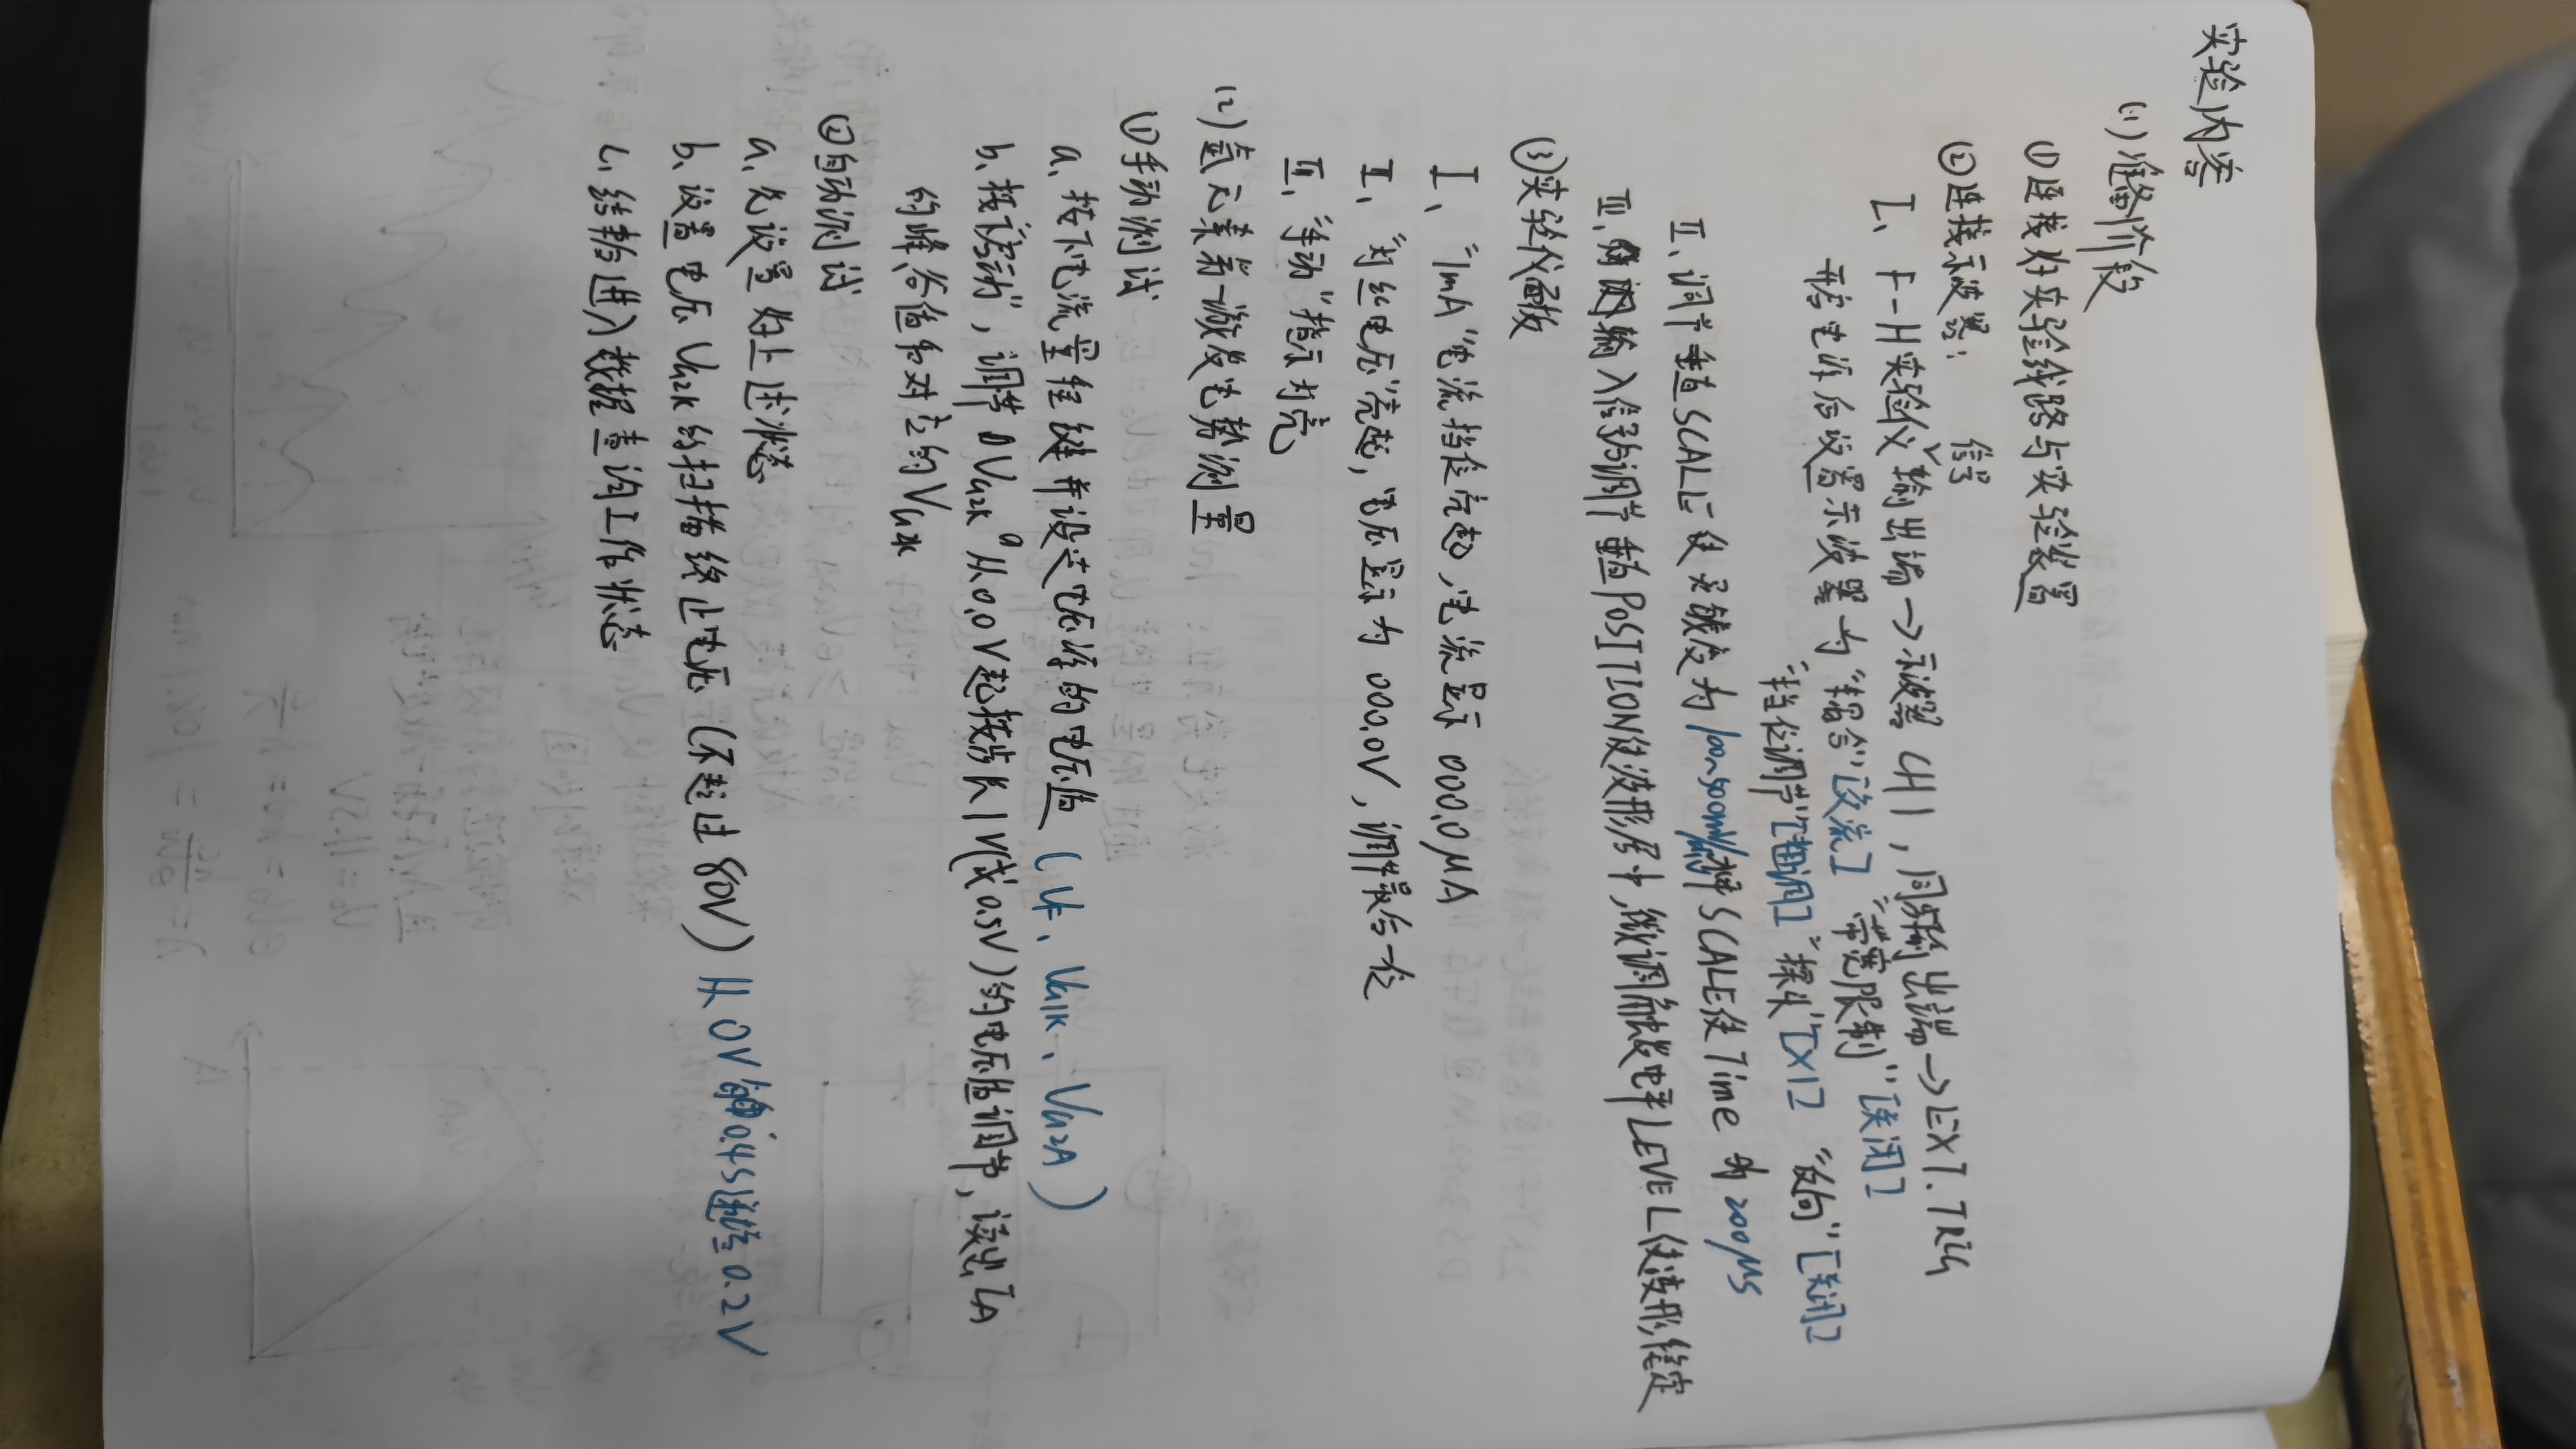 实验内容
(1) 准备阶段
① 连接好实验线路与实验装置
② 连接示波器:
I、F-H实验仪信号输出端→示波器CH1,同步输出端→EXT.TRIG
开启电源后设置示波器为"耦合"[交流] "带宽限制"[关闭]
"挡位调节"[粗调] "探头"[X1] "反向"[关闭]
II、调节垂直SCALE使灵敏度为100~500mV/ 水平SCALE使Time 为 200μs
III、 输入信号 调节垂直POSITION使波形居中,微调触发电平LEVEL使波形稳定
③ 实验仪面板
I、"1mA"电流挡位亮起,电流显示 000.0μA
II、"灯丝电压"亮起,电压显示为 000.0V,调节最后一位
III、"手动"指示灯亮
(2) 氩元素第一激发电势测量
① 手动测试
a、按下电流量程键并设定电压源的电压值 (VF、VG1K、VG2A)
b、按下"启动",调节VG2K从0.0V起按步长1V(或0.5V)的电压值调节,读出IA
的峰、谷值和对应的VG2K
② 自动测试
a、先设置好上述状态
b、设置电压VG2K的扫描终止电压 (不超过80V) 从0V每0.4s递增0.2V
c、结束后进入数据查询工作状态